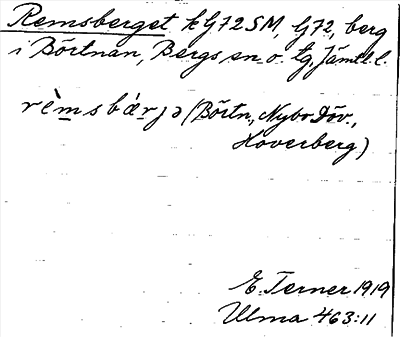 Remsberget k G72SM, G72, berg
i Börtnan, Bergs sn o. tg, Jämtl. l.
rèmsbárjə (Börtn., Nybo Döv.,
Hoverberg)
E. Terner 1919
Ulma 463:11